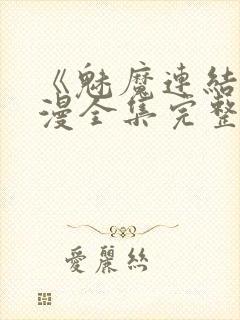 《魅魔連結
漫全集完整
愛麗絲